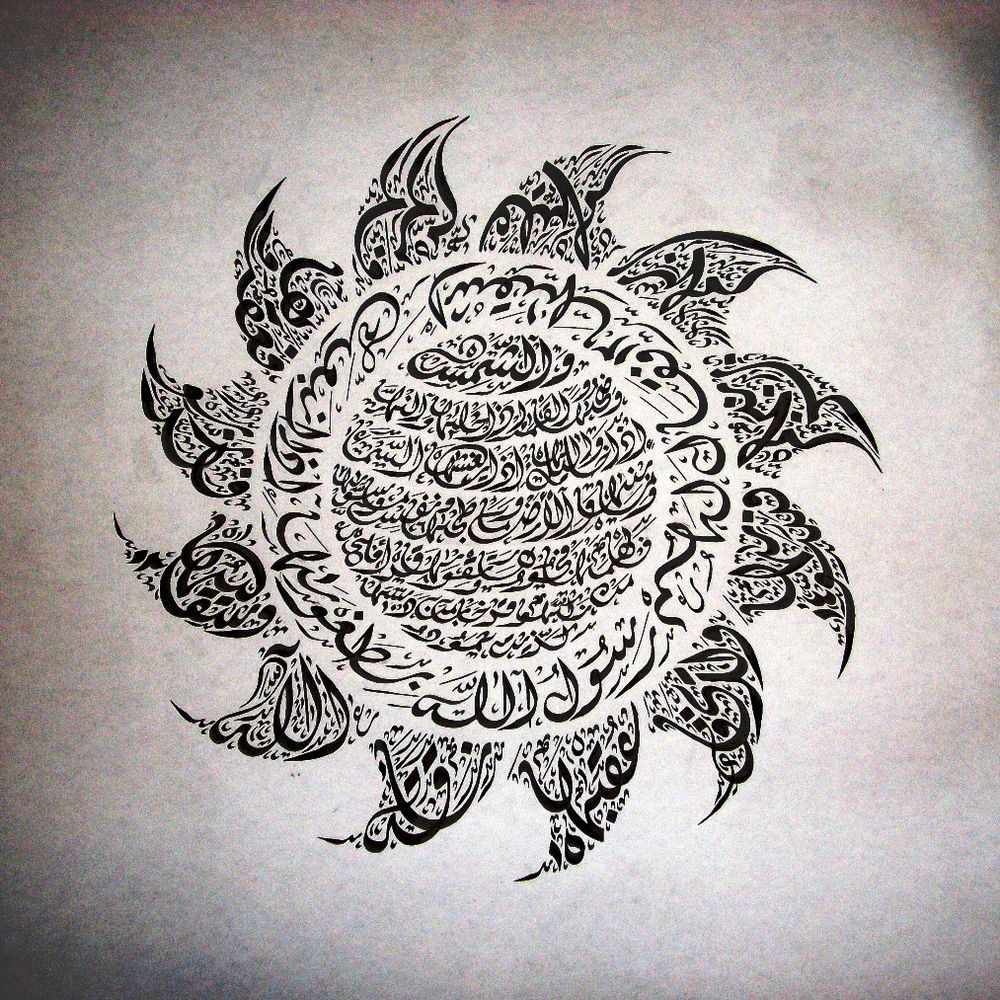 بسم الله الرحمن الرحيم
والشمس
وضحيها والقمر اذا تليها والنهار
اذا جليها والليل اذا يغشيها والسماء
وما بنيها والأرض وما طحيها ونفس وما سويها
فالهمها فجورها وتقويها قد افلح
من زكيها وقد خاب من دسيها
كذبت ثمود
بطغويها اذ انبعث اشقيها فقال لهم رسول الله
ناقة
الله
وسقيها
فكذبوه
فعقروها
فدمدم
عليهم
ربهم
بذنبهم
فسويها
ولا يخاف
عقبيها